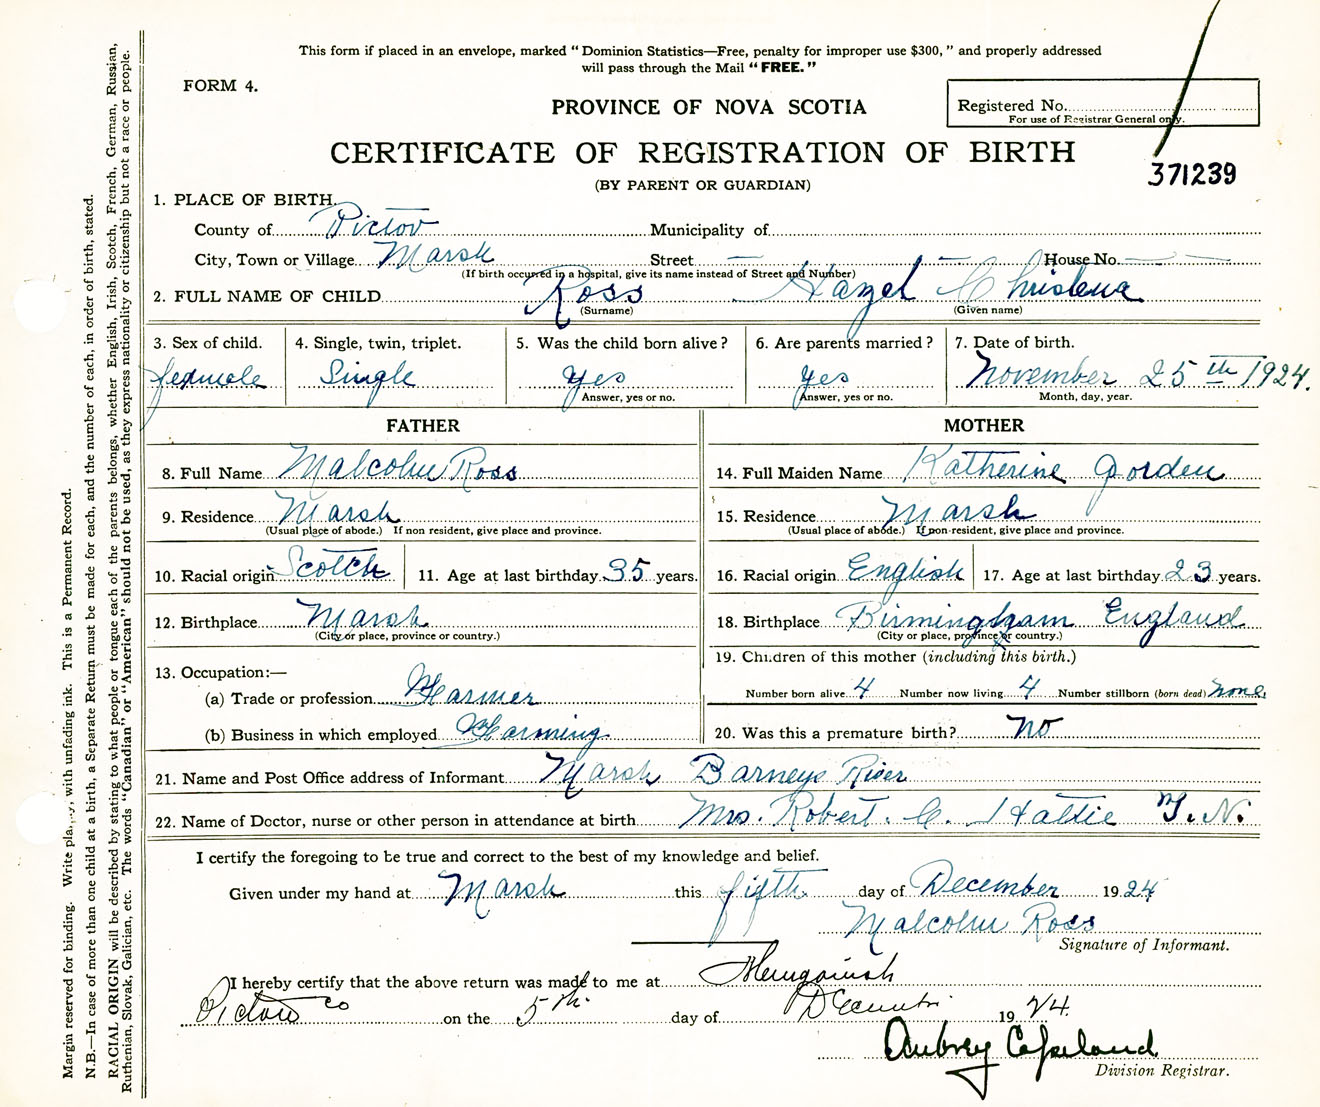 This form if placed in an envelope, marked “Dominion Statistics—Free, penalty for improper use $300,” and properly addressed
will pass through the Mail “FREE.”
FORM 4.
PROVINCE OF NOVA SCOTIA
Registered No.
For use of Registrar General only.
CERTIFICATE OF REGISTRATION OF BIRTH
371239
(BY PARENT OR GUARDIAN)
1. PLACE OF BIRTH.
County of Pictou Municipality of
City, Town or Village Marsh Street — — House No. — —
(If birth occurred in a hospital, give its name instead of Street and Number)
2. FULL NAME OF CHILD Ross Hazel Christena
(Surname) (Given name)
3. Sex of child. 4. Single, twin, triplet. 5. Was the child born alive? 6. Are parents married? 7. Date of birth.
female Single yes yes November 25th 1924.
Answer, yes or no. Answer, yes or no. Month, day, year.
FATHER MOTHER
8. Full Name Malcolm Ross 14. Full Maiden Name Katherine Jorden
9. Residence Marsh 15. Residence Marsh
(Usual place of abode.) If non resident, give place and province. (Usual place of abode.) If non-resident, give place and province.
10. Racial origin Scotch 11. Age at last birthday 35 years. 16. Racial origin English 17. Age at last birthday 23 years.
12. Birthplace Marsh 18. Birthplace Birmingham England
(City or place, province or country.) (City or place, province or country.)
13. Occupation:— 19. Children of this mother (including this birth.)
(a) Trade or profession Farmer Number born alive 4 Number now living 4 Number stillborn (born dead) none.
(b) Business in which employed Farming 20. Was this a premature birth? No
21. Name and Post Office address of Informant Marsh Barneys River
22. Name of Doctor, nurse or other person in attendance at birth Mrs. Robert. C. Hattie T. N.
I certify the foregoing to be true and correct to the best of my knowledge and belief.
Given under my hand at Marsh this fifth day of December 1924
Malcolm Ross
Signature of Informant.
I hereby certify that the above return was made to me at
Pictou Co on the 5th day of December 1924.
Aubrey Copeland
Division Registrar.
Margin reserved for binding. Write plainly, with unfading ink. This is a Permanent Record.
N.B.—In case of more than one child at a birth, a Separate Return must be made for each, and the number of each, in order of birth, stated.
RACIAL ORIGIN will be described by stating to what people or tongue each of the parents belongs, whether English, Irish, Scotch, French, German, Russian,
Ruthenian, Slovak, Galician, etc. The words “Canadian” or “American” should not be used, as they express nationality or citizenship but not a race or people.